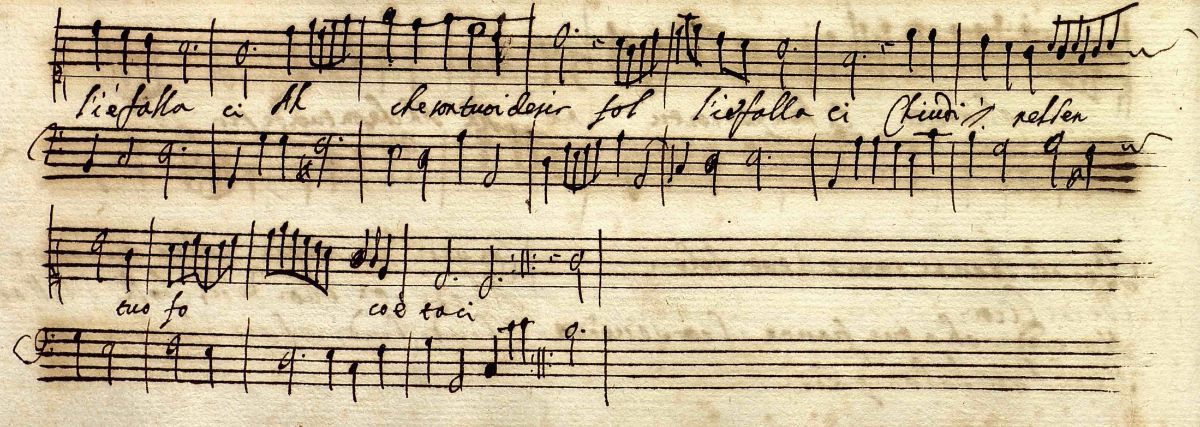 l'i e falla ci Ah che son tuoi desir sol l'i e falla ci Chiudi nel sen
tuo fo co e taci